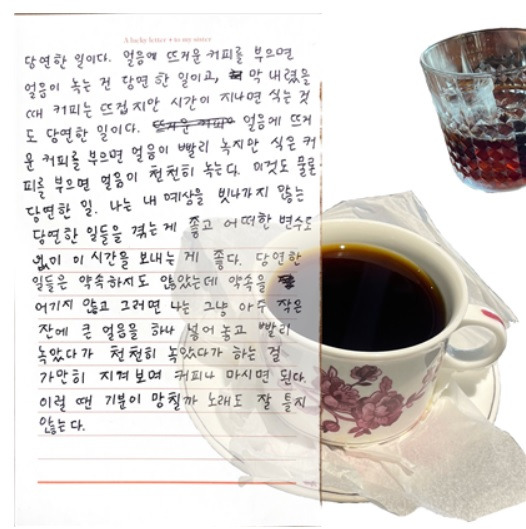 A lucky letter • to my sister
당연한 일이다. 얼음에 뜨거운 커피를 부으면
얼음이 녹는 건 당연한 일이고, 막 내렸을
때 커피는 뜨겁지만 시간이 지나면 식는 것
도 당연한 일이다. 뜨거운 커피에 얼음에 뜨거
운 커피를 부으면 얼음이 빨리 녹지만 식은 커
피를 부으면 얼음이 천천히 녹는다. 이것도 물론
당연한 일. 나는 내 예상을 빗나가지 않는
당연한 일들을 겪는 게 좋고 어떠한 변수도
없이 이 시간을 보내는 게 좋다. 당연한
일들은 약속하지도 않았는데 약속을
어기지 않고 그러면 나는 그냥 아주 작은
잔에 큰 얼음을 하나 넣어 놓고 빨리
녹았다가 천천히 녹았다가 하는 걸
가만히 지켜보며 커피나 마시면 된다.
이럴 땐 기분이 망칠까 노래도 잘 틀지
않는다.